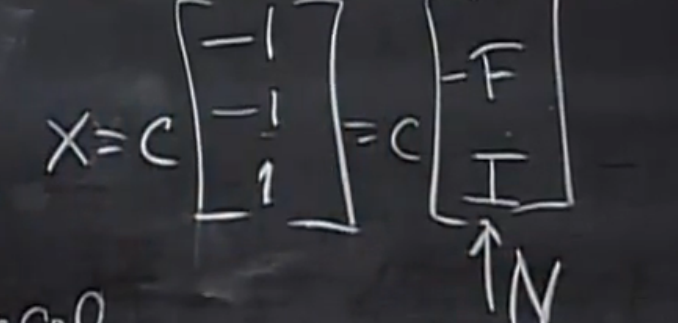 x = c [-1 -1 1] = c [-F I]
↑ N
c=0